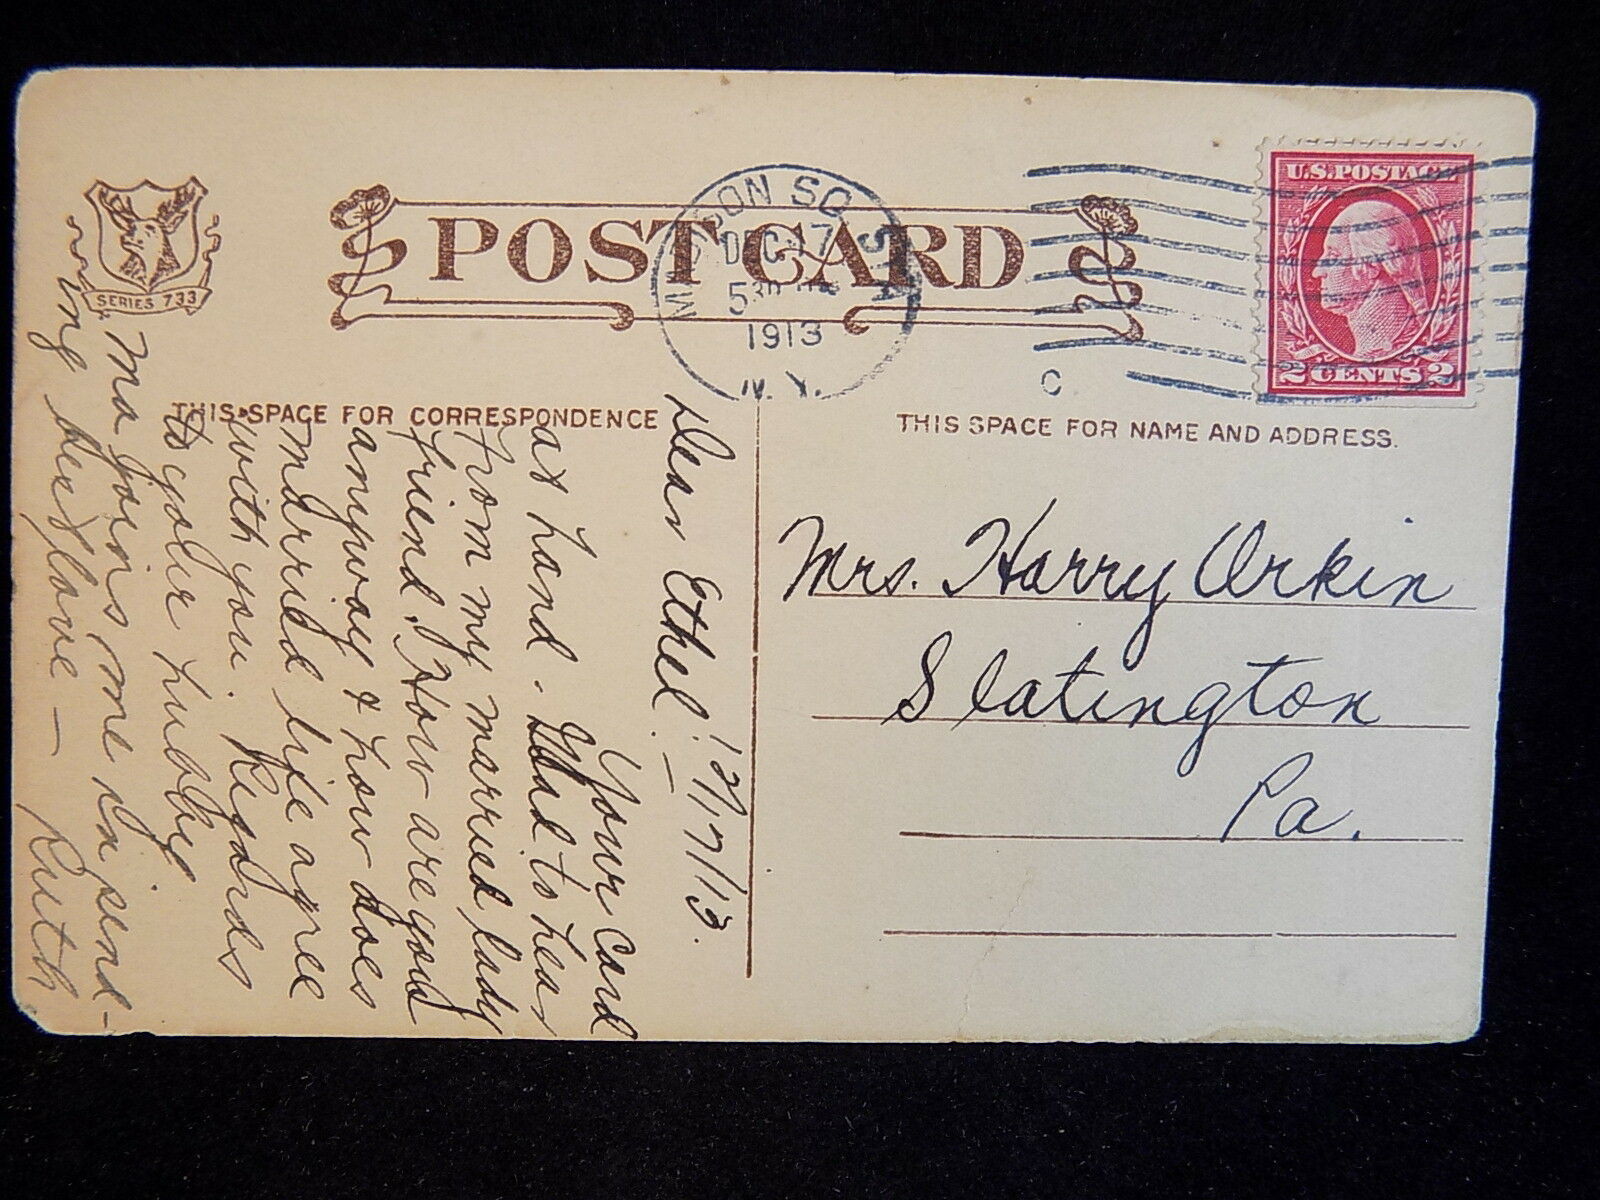 SERIES 733
POST CARD
MADISON SQ. STA.
DEC 17
5 30 PM
1913
N. Y.
C
U.S. POSTAGE
2 CENTS 2
THIS SPACE FOR CORRESPONDENCE
THIS SPACE FOR NAME AND ADDRESS.
Mrs. Harry Orkin
Slatington
Pa.
12/17/13.
Dear Ethel! —
Your card
at hand. Glad to hear
from my married lady
friend. How are you
anyway & how does
married life agree
with you. Regards
to your hubby
Ma joins me in send-
ing best love —
Ruth